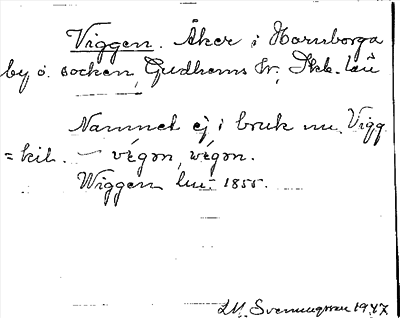 Viggen. Åker i Hornborga
by o. socken, Gudhems hr, Skb. län
Namnet ej i bruk nu. Vigg
= kil. — vég​ən, wég​ən.
Wiggen lm. 1855.
Svenungsson 1947